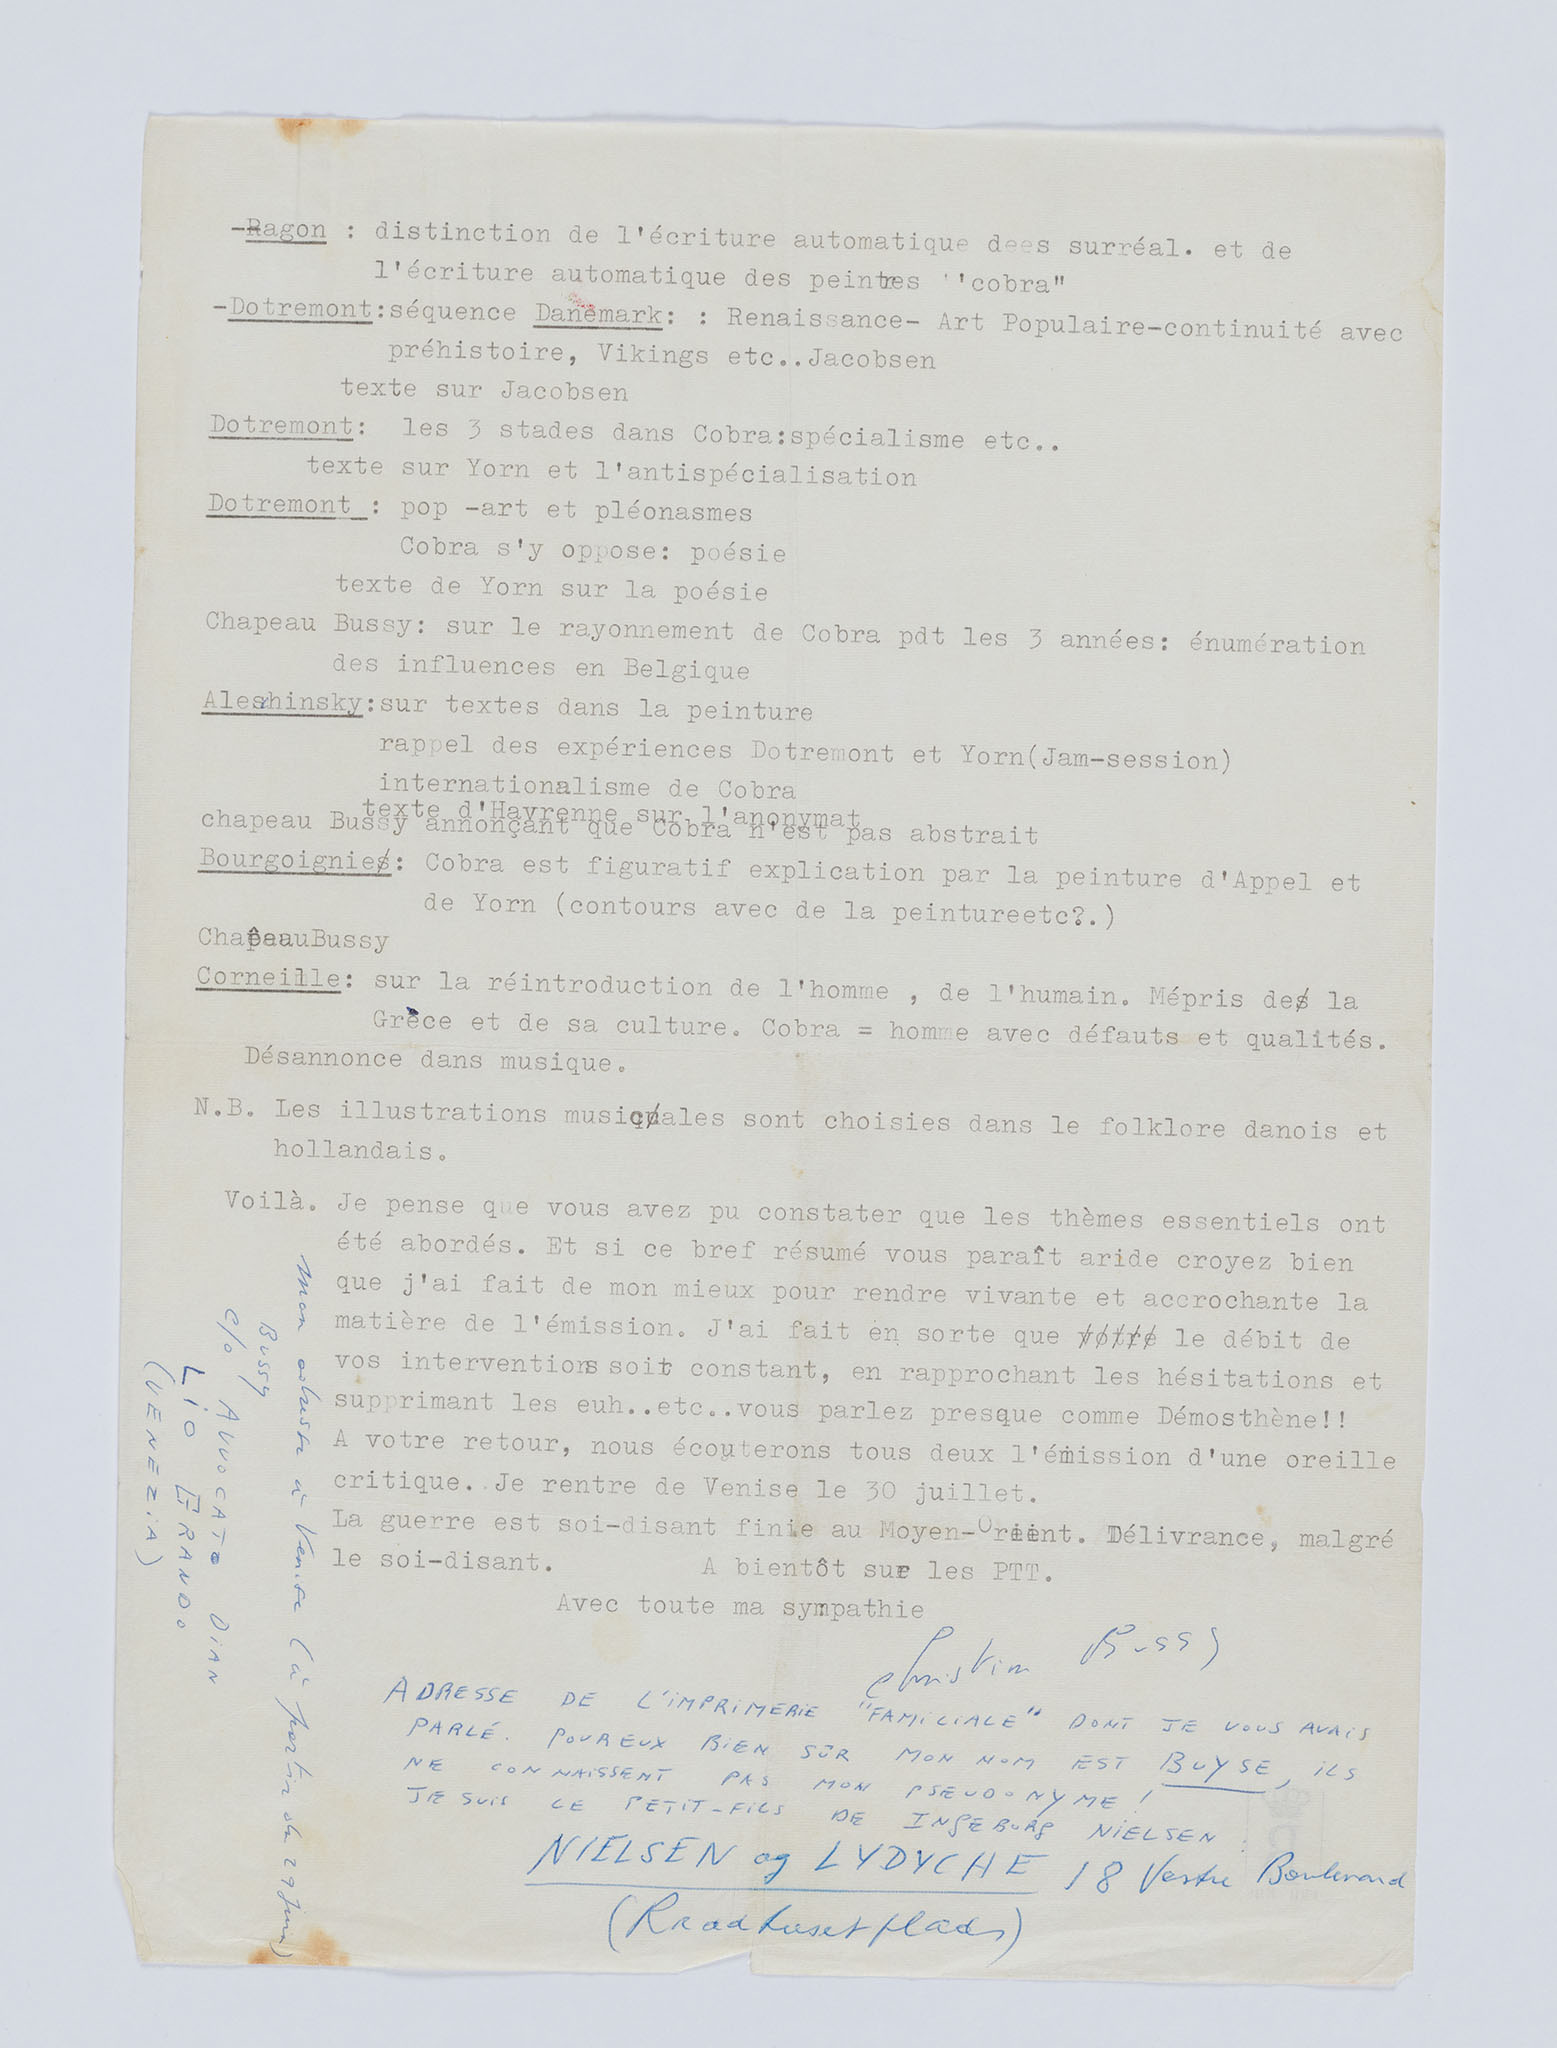 -Ragon : distinction de l'écriture automatique dees surréal. et de
l'écriture automatique des peintres ''cobra"
-Dotremont:séquence Danemark: : Renaissance- Art Populaire-continuité avec
préhistoire, Vikings etc..Jacobsen
texte sur Jacobsen
Dotremont: les 3 stades dans Cobra:spécialisme etc..
texte sur Yorn et l'antispécialisation
Dotremont : pop -art et pléonasmes
Cobra s'y oppose: poésie
texte de Yorn sur la poésie
Chapeau Bussy: sur le rayonnement de Cobra pdt les 3 années: énumération
des influences en Belgique
Aleshinsky:sur textes dans la peinture
rappel des expériences Dotremont et Yorn(Jam-session)
internationalisme de Cobra
texte d'Havrenne sur l'anonymat
chapeau Bussy annonçant que Cobra n'est pas abstrait
Bourgoignies: Cobra est figuratif explication par la peinture d'Appel et
de Yorn (contours avec de la peintureetc?.)
ChapeauBussy
Corneille: sur la réintroduction de l'homme , de l'humain. Mépris des la
Grèce et de sa culture. Cobra = homme avec défauts et qualités.
Désannonce dans musique.
N.B. Les illustrations musicales sont choisies dans le folklore danois et
hollandais.
Voilà. Je pense que vous avez pu constater que les thèmes essentiels ont
été abordés. Et si ce bref résumé vous paraît aride croyez bien
que j'ai fait de mon mieux pour rendre vivante et accrochante la
matière de l'émission. J'ai fait en sorte que votre le débit de
vos interventions soit constant, en rapprochant les hésitations et
supprimant les euh..etc..vous parlez presque comme Démosthène!!
A votre retour, nous écouterons tous deux l'émission d'une oreille
critique. Je rentre de Venise le 30 juillet.
La guerre est soi-disant finie au Moyen-Orient. Délivrance, malgré
le soi-disant. A bientôt sur les PTT.
Avec toute ma sympathie
Christian Bussy
ADRESSE DE L'IMPRIMERIE "FAMILIALE" DONT JE VOUS AVAIS
PARLÉ. POUR EUX BIEN SÛR MON NOM EST BUYSE, ILS
NE CONNAISSENT PAS MON PSEUDONYME!
JE SUIS LE PETIT-FILS DE INGEBURG NIELSEN.
NIELSEN og LYDYCHE 18 Vestre Boulevard
(Raadhusetplads)
Mon adresse à Venise (à partir du 29 juin)
BUSSY
c/o AVVOCATO DIAN
LIO ERANDO
(VENEZIA)